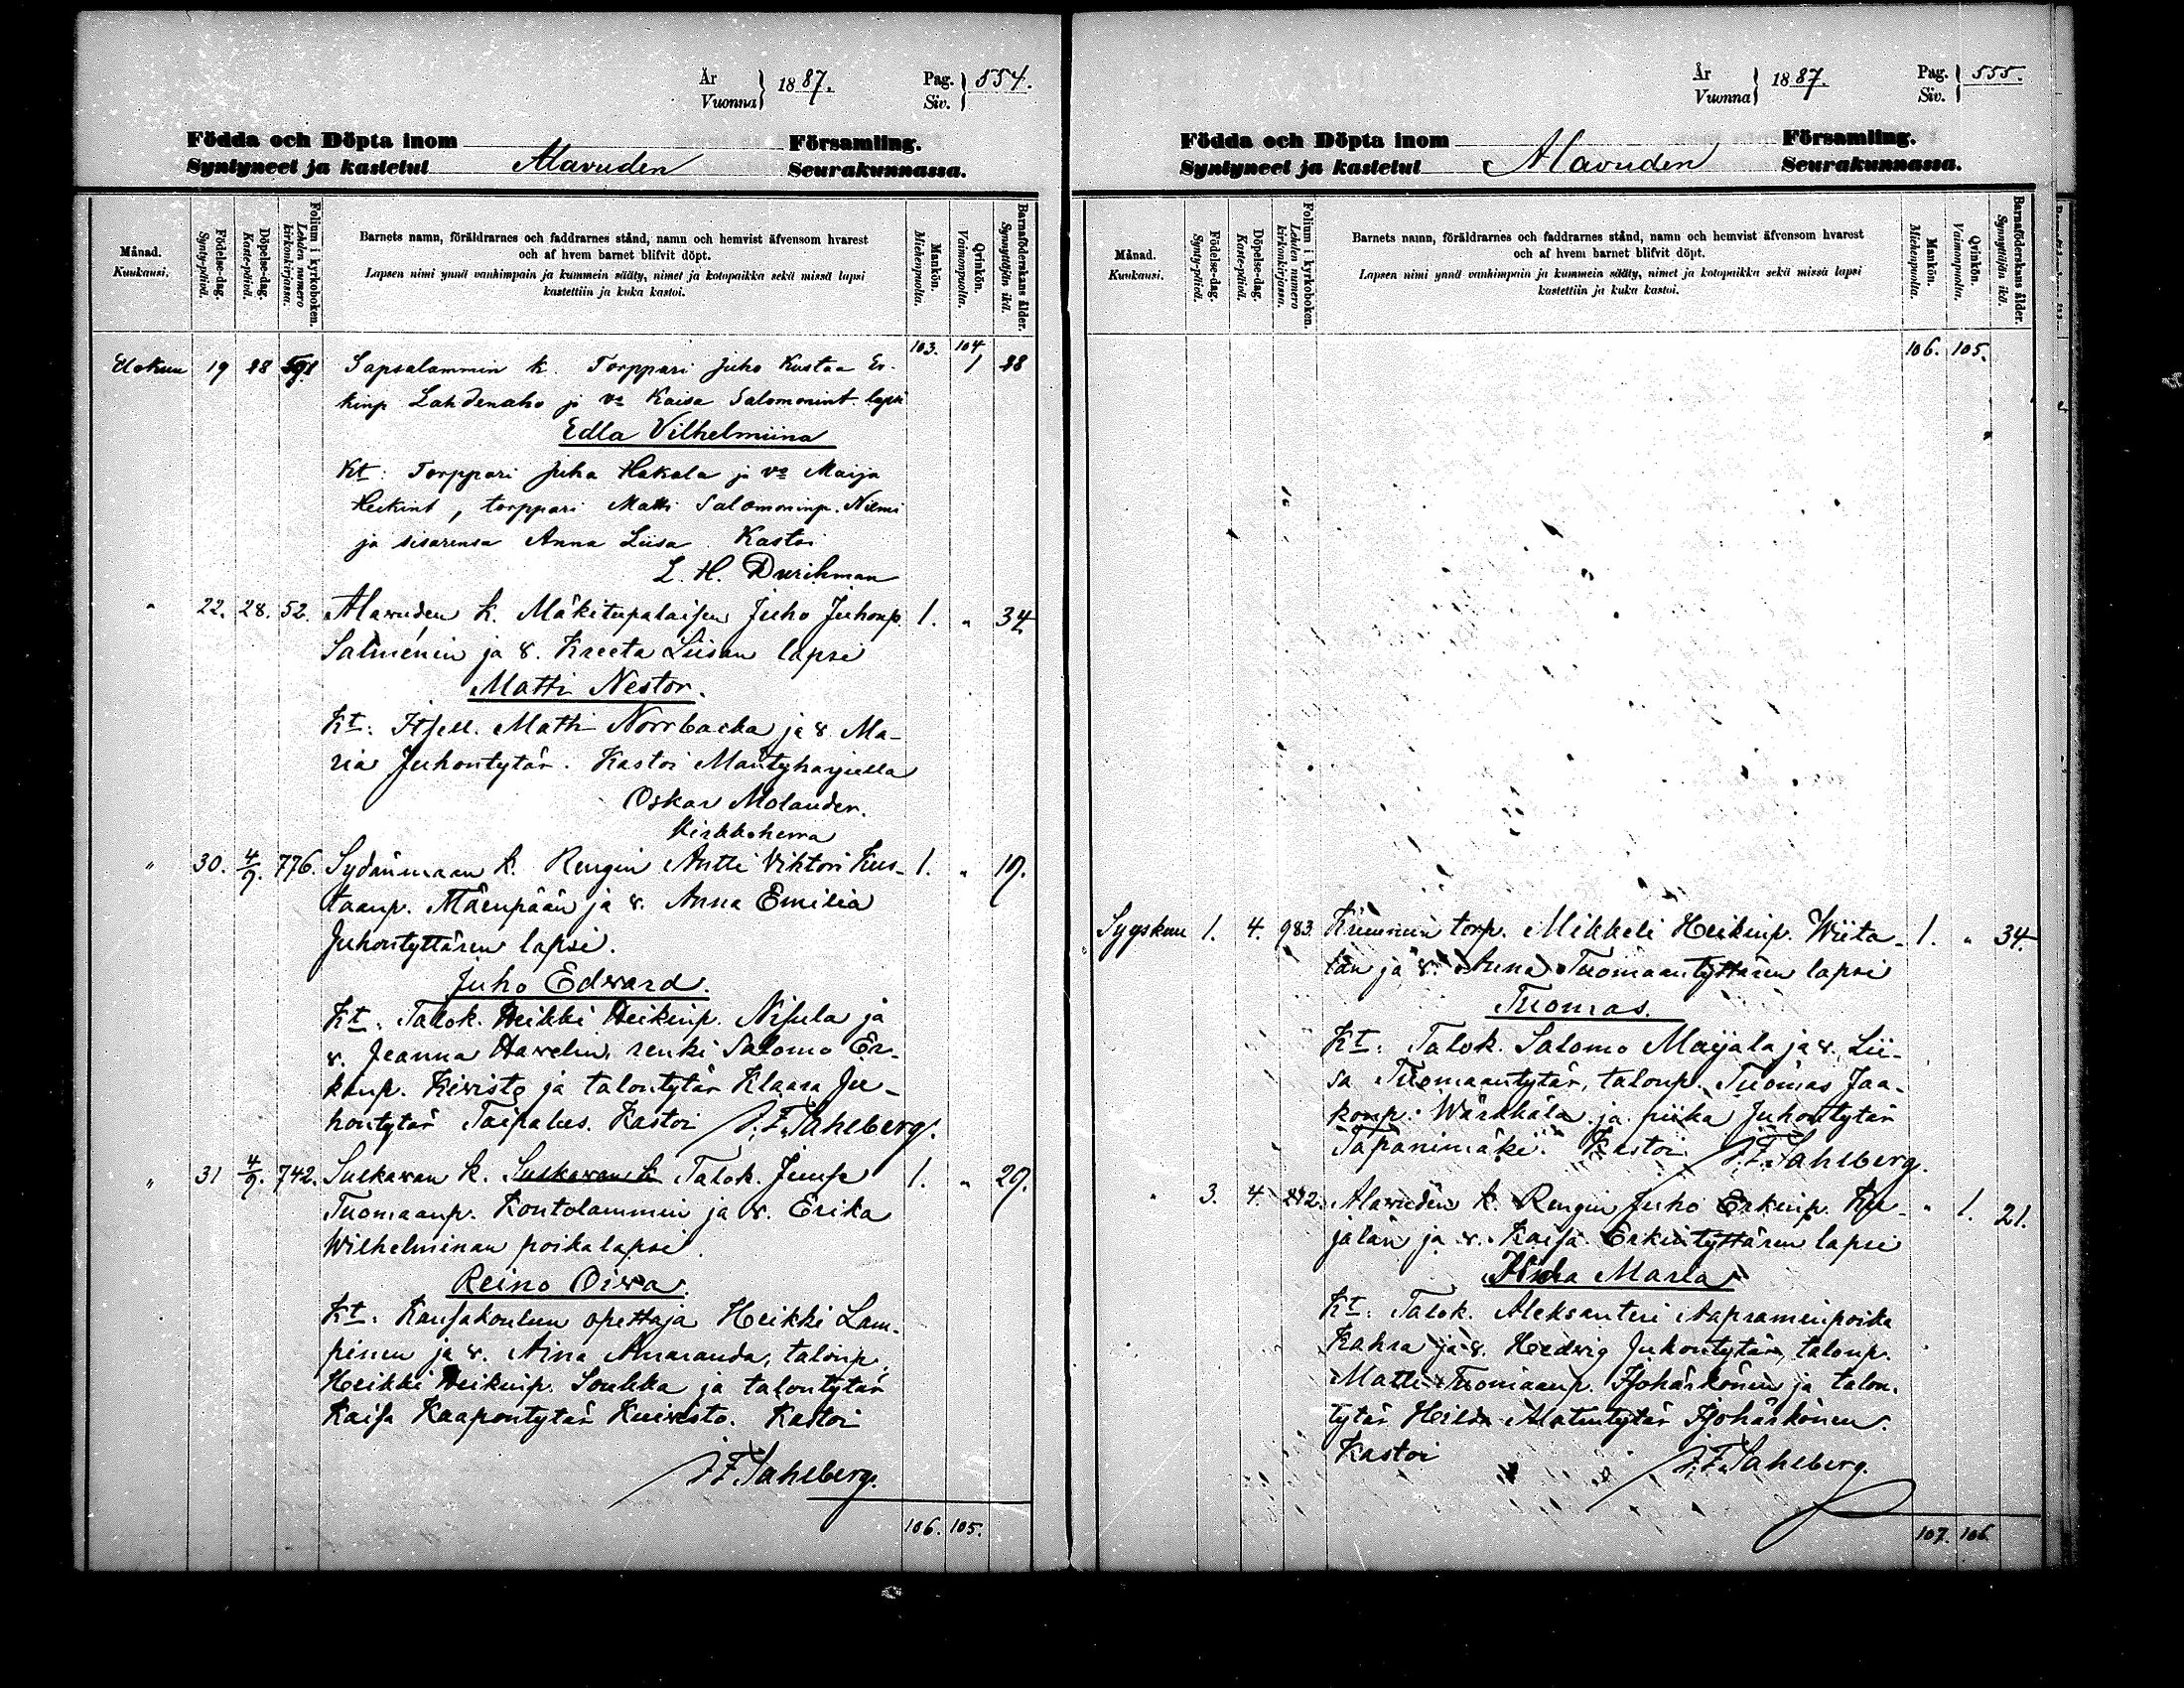 År
Vuonna } 1887. Pag.
Siv. } 554.
Födda och Döpta inom Församling.
Syntyneet ja kastetut Alavuden Seurakunnassa.
Månad.
Kuukausi.
Födelse-dag.
Synty-päivä.
Döpelse-dag.
Kaste-päivä.
Folium i kyrkoboken.
Lehden numero
kirkonkirjassa.
Barnets namn, föräldrarnes och faddrarnes stånd, namn och hemvist äfvensom hvarest
och af hvem barnet blifvit döpt.
Lapsen nimi ynnä vanhimpain ja kummein sääty, nimet ja kotopaikka sekä missä lapsi
kastettiin ja kuka kastoi.
Mankön.
Miehenpuolta.
Qvinkön.
Vaimonpuolta.
Barnaföderskans ålder.
Synnyttäjän ikä.
103. 104
Elokuu 19 28 Sapsalammin k. Torppari Juho Kustaa Er- 1 28
kinp Lahdenaho ja va Kaisa Salomonint. lapsi
Edla Vilhelmiina
Kt: Torppari Juha Hakala ja va Maija
Heikint, torppari Matti Salomoninp. Niemi
ja sisarensa Anna Liisa Kastoi
L. H. Durchman
" 22. 28. 52. Alavuden k. Mäkitupalaisen Juho Juhonp. 1. " 34
Salmenin ja v. Kreeta Liisan lapsi
Matti Nestor.
Kt: Itsell. Matti Norrbacka ja v. Ma-
ria Juhontytär. Kastoi Mäntyharjulla
Oskar Molander.
Kirkkoherra
" 30. 4/9. 776. Sydänmaan k. Rengin Antti Viktori Kus- 1. " 19.
taanp. Mäenpään ja v. Anna Emilia
Juhontyttären lapsi.
Juho Edvard.
Kt: Talok. Heikki Heikinp. Nisula ja
v. Jeanna renki Salomo Er-
kinp. Kivisto ja talontytär Klaara Ju-
hontytär Taipalus. Kastoi J. F. Sahlberg.
" 31 4/9. 742. Sulkavan k. Sulkavan k Talok. Juuse 1. " 29.
Tuomaanp. Kontolammin ja v. Erika
Wilhelminan poikalapsi.
Reino Oiva.
Kt: Kansakoulun opettaja Heikki Lam-
pinen ja v. Aina Amaranda, talonp.
Heikki Heikinp. Soukka ja talontytär
Kaisa Kaapontytär Kuivisto. Kastoi
J. F. Sahlberg.
106. 105.
År
Vuonna } 1887. Pag.
Siv. } 555.
Födda och Döpta inom Församling.
Syntyneet ja kastetut Alavuden Seurakunnassa.
Månad.
Kuukausi.
Födelse-dag.
Synty-päivä.
Döpelse-dag.
Kaste-päivä.
Folium i kyrkoboken.
Lehden numero
kirkonkirjassa.
Barnets namn, föräldrarnes och faddrarnes stånd, namn och hemvist äfvensom hvarest
och af hvem barnet blifvit döpt.
Lapsen nimi ynnä vanhimpain ja kummein sääty, nimet ja kotopaikka sekä missä lapsi
kastettiin ja kuka kastoi.
Mankön.
Miehenpuolta.
Qvinkön.
Vaimonpuolta.
Barnaföderskans ålder.
Synnyttäjän ikä.
106. 105.
Syyskuu 1. 4. 983. torp. Mikkeli Heikinp. Wiita- 1. " 34.
lan ja v. Anna Tuomaantyttären lapsi
Tuomas.
Kt: Talok. Salomo Maijala ja v. Lii-
sa Tuomaantytär, talonp. Tuomas Jaa-
konp. ja piika Juhontytär
Tapanimäki. Kastoi J. F. Sahlberg.
" 3. 4. Alavuden k. Rengin Juho Erkinp. Ku- " 1. 21.
jalan ja v. Kaisa Erkintyttären lapsi
Maria
Kt: Talok. Aleksanteri Aapraminpoika
Kahra ja v. Hedvig Juhontytär, talonp.
Matti Tuomaanp. ja talon-
tytär Hilda Matintytär
Kastoi J. F. Sahlberg.
107. 106.